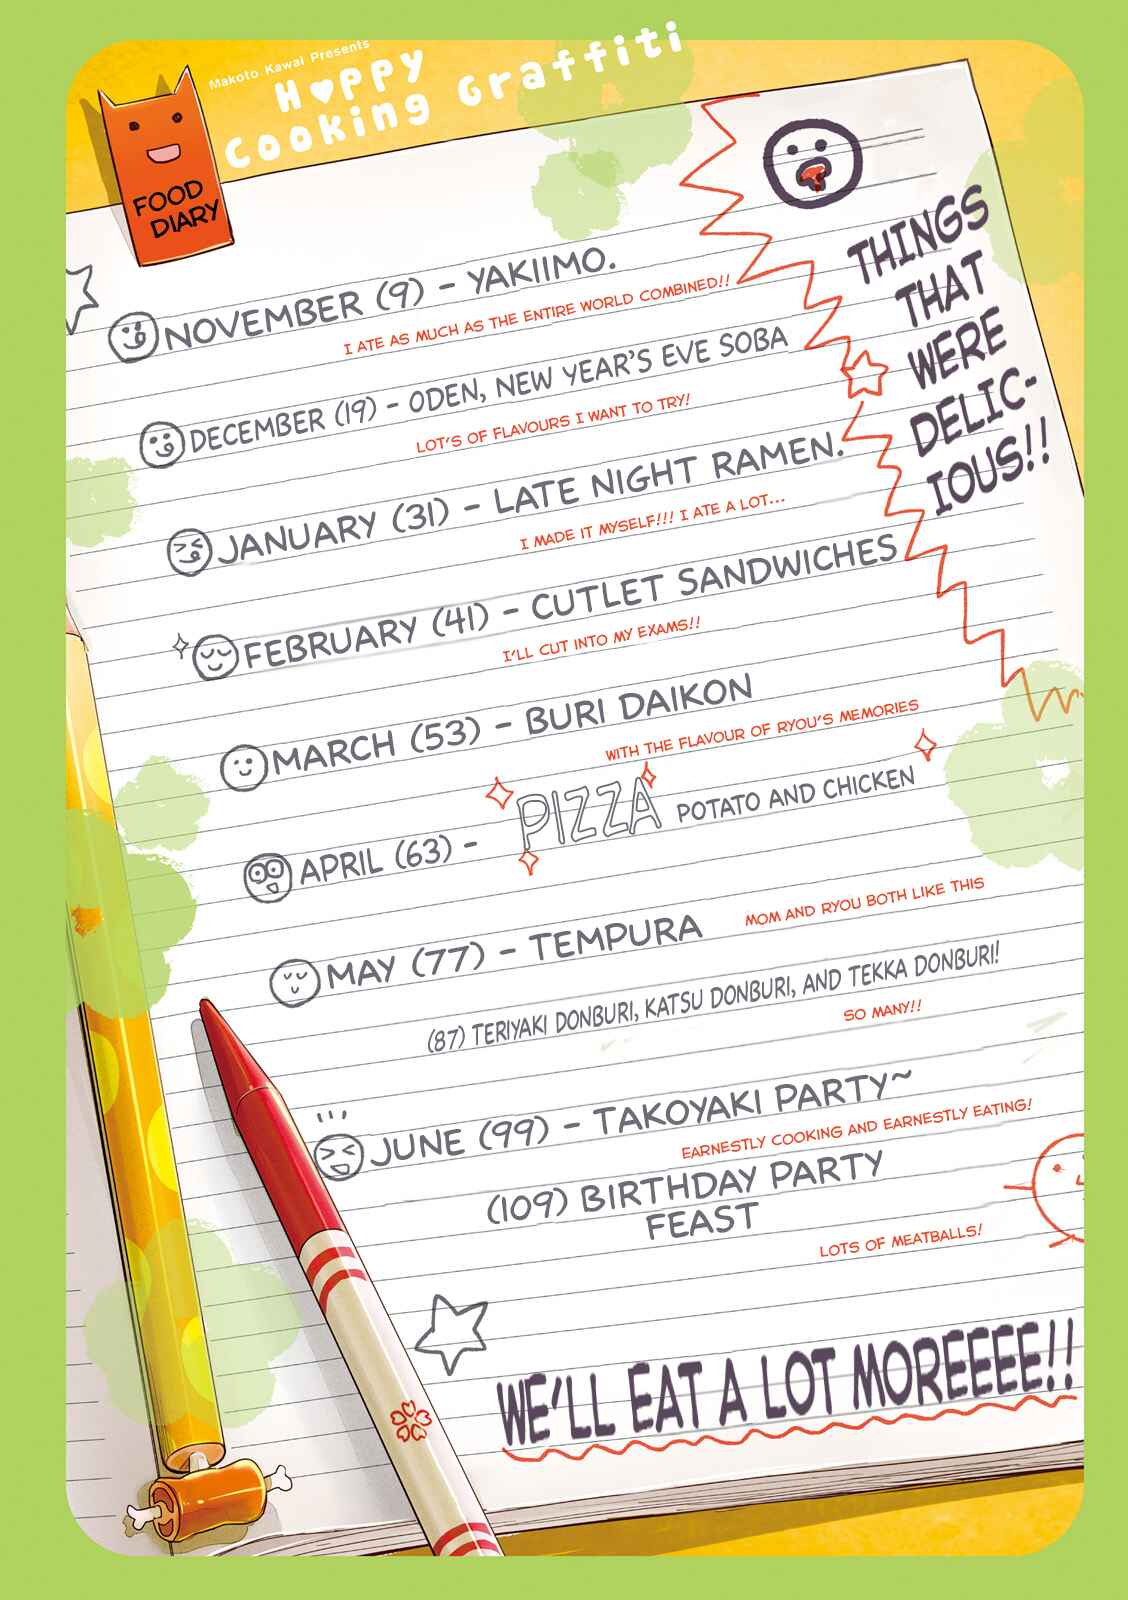 Makoto Kawai Presents
Happy
Cooking Graffiti
FOOD
DIARY
THINGS
THAT
WERE
DELIC-
IOUS!!
NOVEMBER (9) - YAKIIMO.
I ATE AS MUCH AS THE ENTIRE WORLD COMBINED!!
DECEMBER (19) - ODEN, NEW YEAR'S EVE SOBA
LOT'S OF FLAVOURS I WANT TO TRY!
JANUARY (31) - LATE NIGHT RAMEN.
I MADE IT MYSELF!!! I ATE A LOT...
FEBRUARY (41) - CUTLET SANDWICHES
I'LL CUT INTO MY EXAMS!!
MARCH (53) - BURI DAIKON
WITH THE FLAVOUR OF RYOU'S MEMORIES
APRIL (63) - PIZZA POTATO AND CHICKEN
MAY (77) - TEMPURA
MOM AND RYOU BOTH LIKE THIS
(87) TERIYAKI DONBURI, KATSU DONBURI, AND TEKKA DONBURI!
SO MANY!!
JUNE (99) - TAKOYAKI PARTY~
EARNESTLY COOKING AND EARNESTLY EATING!
(109) BIRTHDAY PARTY
FEAST
LOTS OF MEATBALLS!
WE'LL EAT A LOT MOREEEE!!